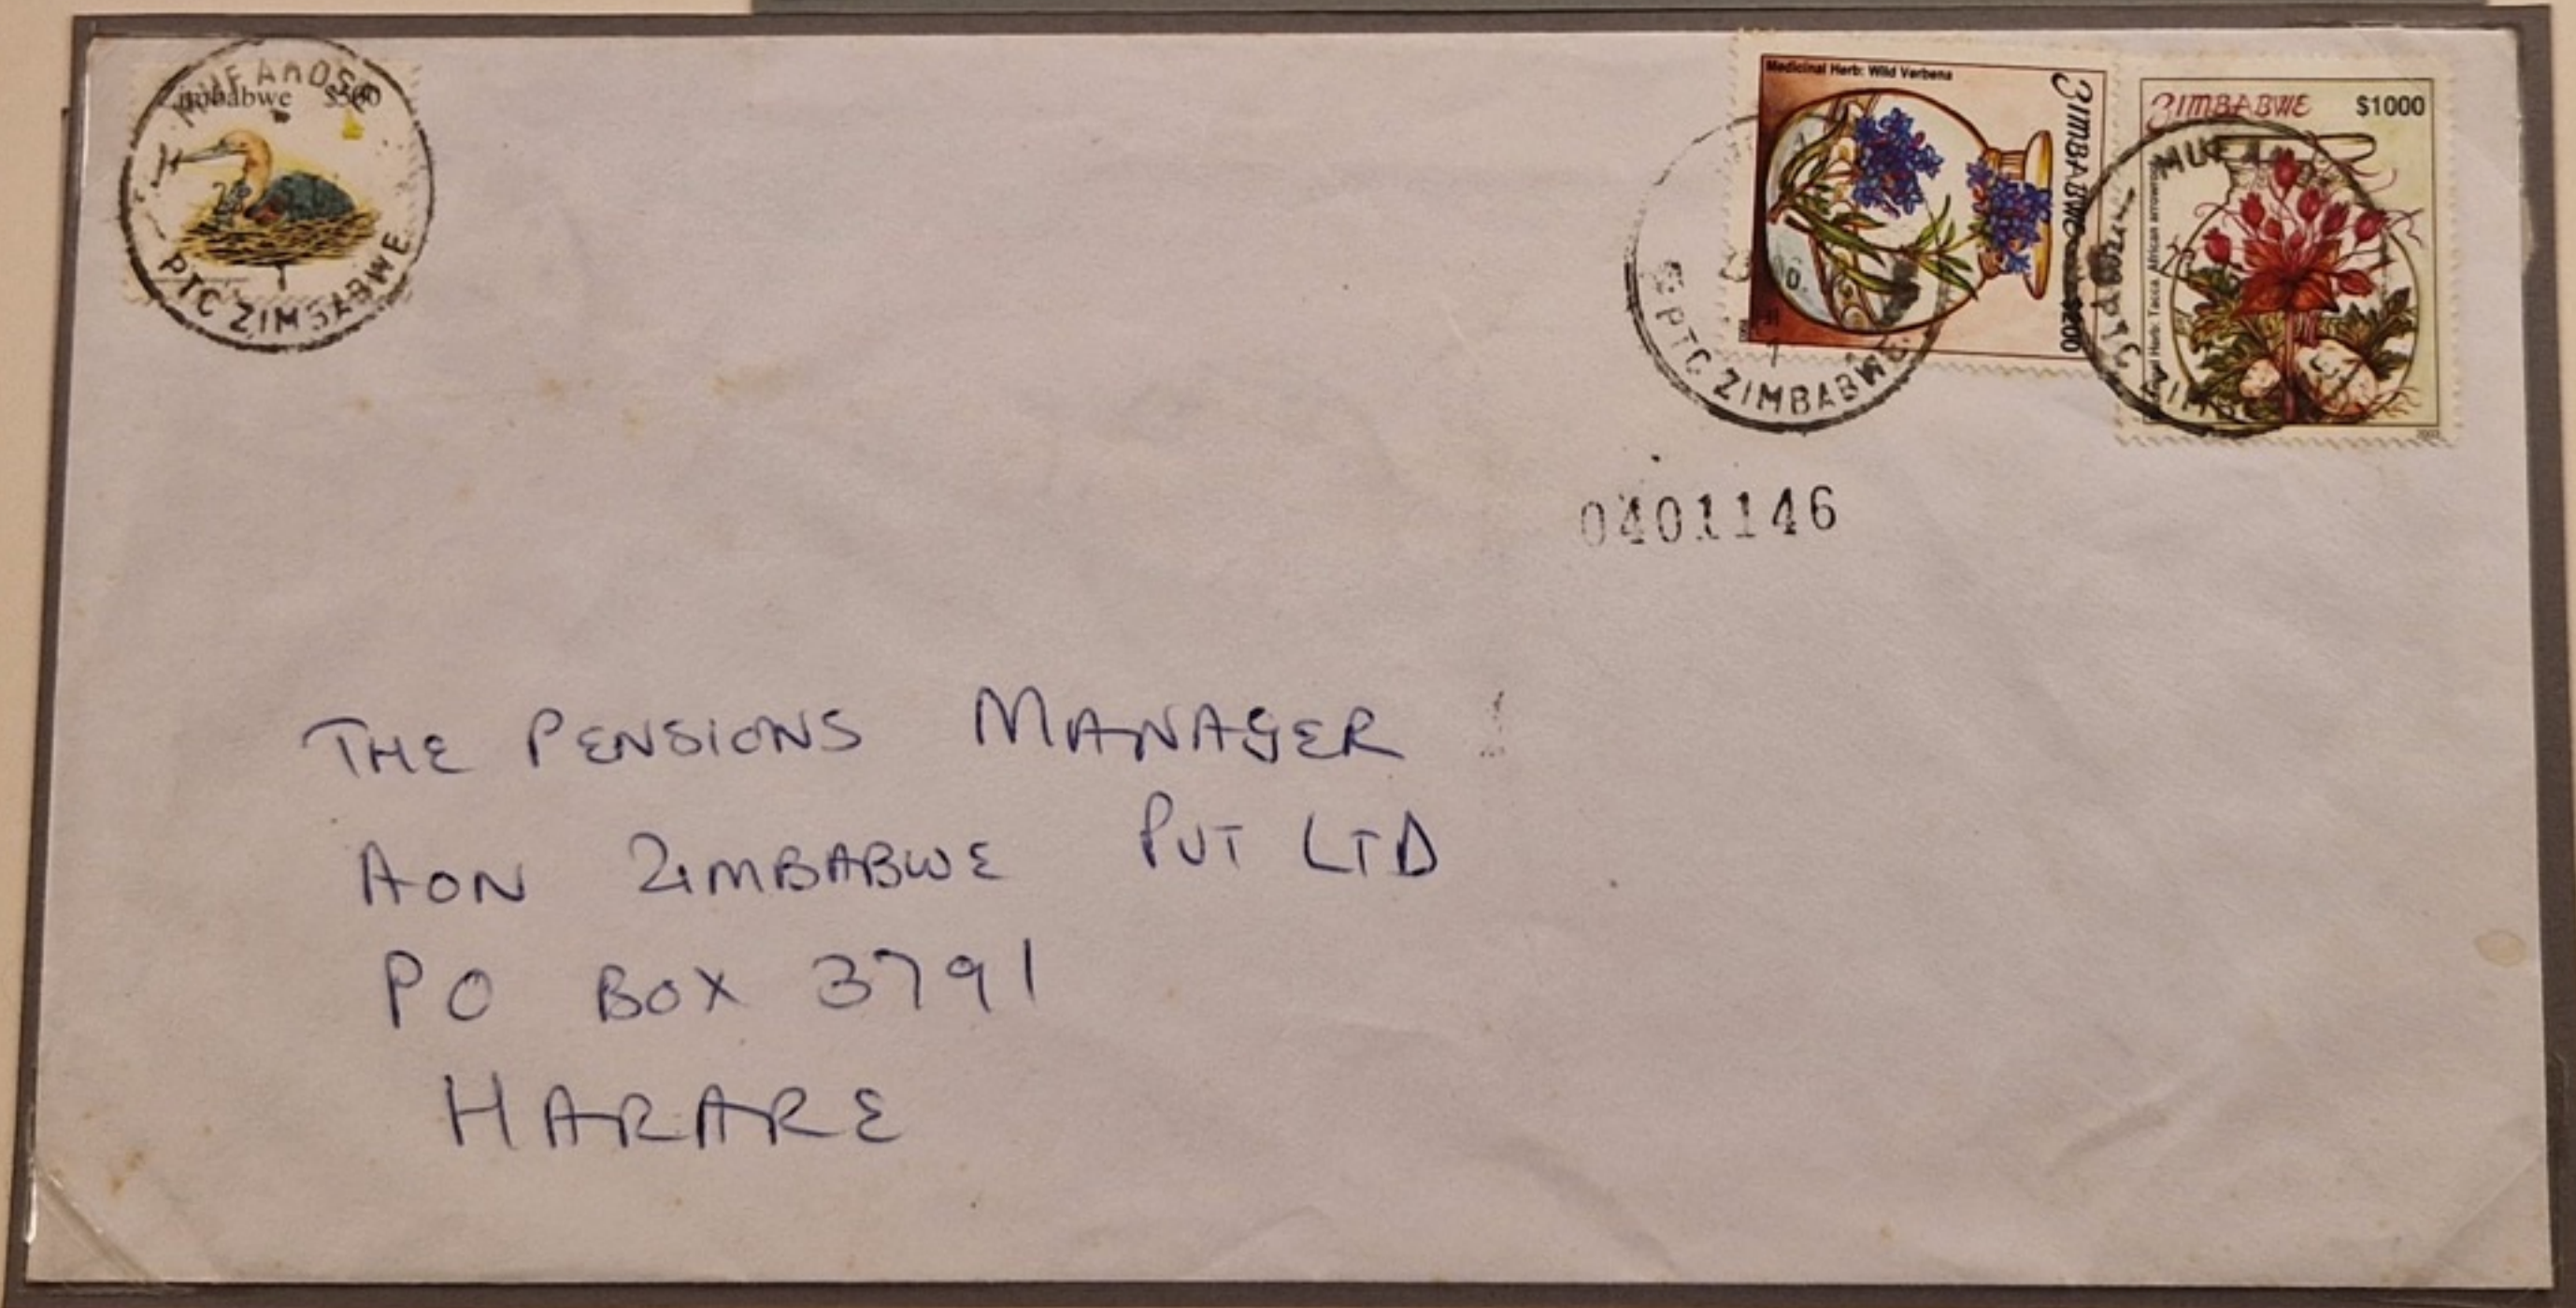 Zimbabwe $500
PTC ZIMBABWE
Medicinal Herb: Wild Verbena
ZIMBABWE $200
PTC ZIMBABWE
ZIMBABWE $1000
Herb: Tacca African arrowroot
MUF
PTC ZIM
2003
0401146
THE PENSIONS MANAGER
AON ZIMBABWE PVT LTD
PO BOX 3791
HARARE